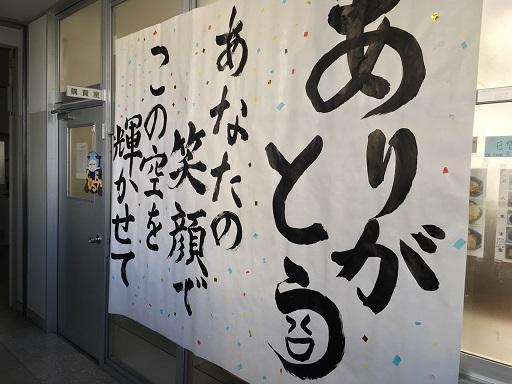 ありが
とう
あなたの
笑顔で
この空を
輝かせて
購買室